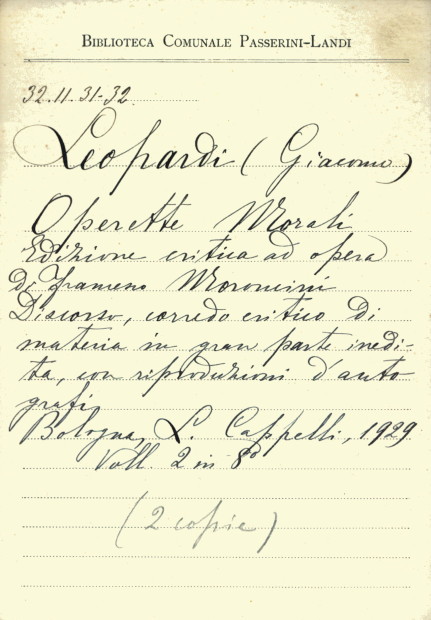 BIBLIOTECA COMUNALE PASSERINI-LANDI
32.11.31-32
Leopardi (Giacomo)
Operette Morali
Edizione critica ad opera
Di Francesco Moroncini
Discorso, corredo critico di
materia in gran parte inedi-
ta, con riproduzioni d'auto
grafi
Bologna, L. Cappelli, 1929
Voll. 2 in 8º
(2 copie)